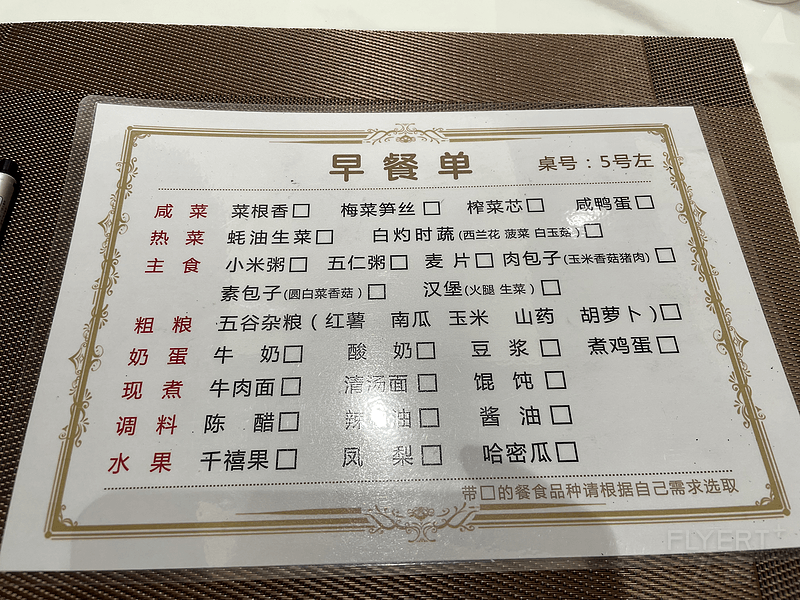 早餐单 桌号：5号左
咸菜 菜根香□ 梅菜笋丝□ 榨菜芯□ 咸鸭蛋□
热菜 蚝油生菜□ 白灼时蔬(西兰花 菠菜 白玉菇)□
主食 小米粥□ 五仁粥□ 麦片□ 肉包子(玉米香菇猪肉)□
素包子(圆白菜香菇)□ 汉堡(火腿 生菜)□
粗粮 五谷杂粮(红薯 南瓜 玉米 山药 胡萝卜)□
奶蛋 牛奶□ 酸奶□ 豆浆□ 煮鸡蛋□
现煮 牛肉面□ 清汤面□ 馄饨□
调料 陈醋□ 辣油□ 酱油□
水果 千禧果□ 凤梨□ 哈密瓜□
带□的餐食品种请根据自己需求选取
FLYERT